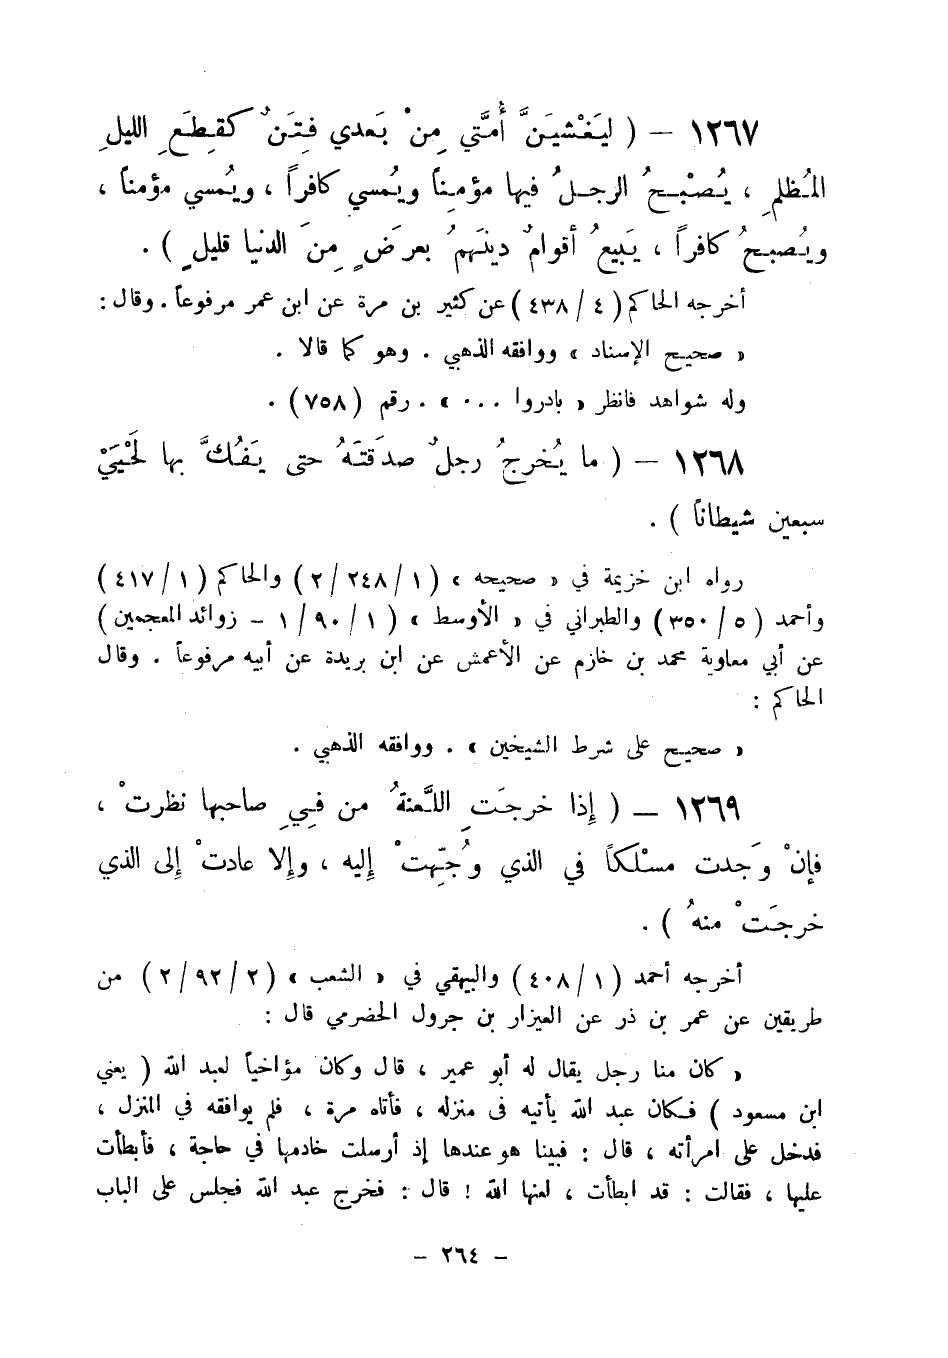 ١٢٦٧ – ( ليَغْشيَنَّ أُمَّتي مِنْ بَعدي فِتَنٌ كقِطَعِ الليلِ
المُظلمِ ، يُصْبحُ الرجلُ فيها مؤمِناً ويُمسي كافراً ، ويُمسي مؤمناً ،
ويُصبحُ كافراً ، يَبيعُ أقوامٌ دينَهمُ بعرَضٍ مِنَ الدنيا قليلٍ ) .
أخرجه الحاكم ( ٤ / ٤٣٨ ) عن كثير بن مرة عن ابن عمر مرفوعاً . وقال :
« صحيح الإسناد » ووافقه الذهبي . وهو كما قالا .
وله شواهد فانظر « بادروا ... » . رقم ( ٧٥٨ ) .
١٢٦٨ – ( ما يُخرجُ رجلٌ صدَقتَهُ حتى يَفُكَّ بها لَحْيَيْ
سبعين شيطاناً ) .
رواه ابن خزيمة في « صحيحه » ( ١ / ٢٤٨ / ٢ ) والحاكم ( ١ / ٤١٧ )
وأحمد ( ٥ / ٣٥٠ ) والطبراني في « الأوسط » ( ١ / ٩٠ / ١ – زوائد المعجمين )
عن أبي معاوية محمد بن خازم عن الأعمش عن ابن بريدة عن أبيه مرفوعاً . وقال
الحاكم :
« صحيح على شرط الشيخين » . ووافقه الذهبي .
١٢٦٩ – ( إذا خرجَتِ اللَّعنةُ من فِيِ صاحبها نظرتْ ،
فإنْ وَجدت مسْلكاً في الذي وُجِّهتْ إليه ، وإلا عادتْ إلى الذي
خرجَتْ منهُ ) .
أخرجه أحمد ( ١ / ٤٠٨ ) والبيهقي في « الشعب » ( ٢ / ٩٢ / ٢ ) من
طريقين عن عمر بن ذر عن العيزار بن جرول الحضرمي قال :
« كان منا رجل يقال له أبو عمير ، قال وكان مؤاخياً لعبد الله ( يعني
ابن مسعود ) فكان عبد الله يأتيه فى منزله ، فأتاه مرة ، فلم يوافقه في المنزل ،
فدخل على امرأته ، قال : فبينا هو عندها إذ أرسلت خادمها في حاجة ، فأبطأت
عليها ، فقالت : قد ابطأت ، لعنها الله ! قال : فخرج عبد الله فجلس على الباب
– ٢٦٤ –